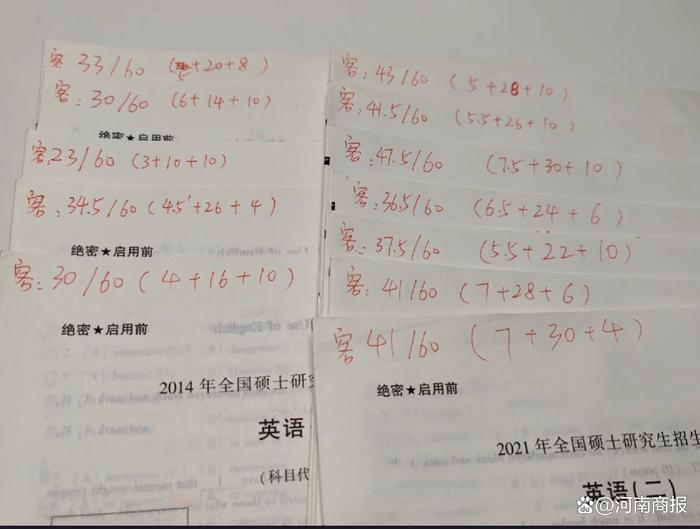 客 33/60 (5+20+8)
客: 30/60 (6+14+10)
绝密★启用前
客: 23/60 (3+10+10)
客: 34.5/60 (4.5+26+4)
绝密★启用前
客: 30/60 (4+16+10)
绝密★启用前
2014年全国硕士研究
英语
(科目代
客: 43/60 (5+28+10)
客: 41.5/60 (5.5+26+10)
客: 47.5/60 (7.5+30+10)
客: 36.5/60 (6.5+24+6)
客: 37.5/60 (5.5+22+10)
客: 41/60 (7+28+6)
客 41/60 (7+30+4)
绝密★启用前
2021年全国硕士研究生招生
英语(二)
河南商报